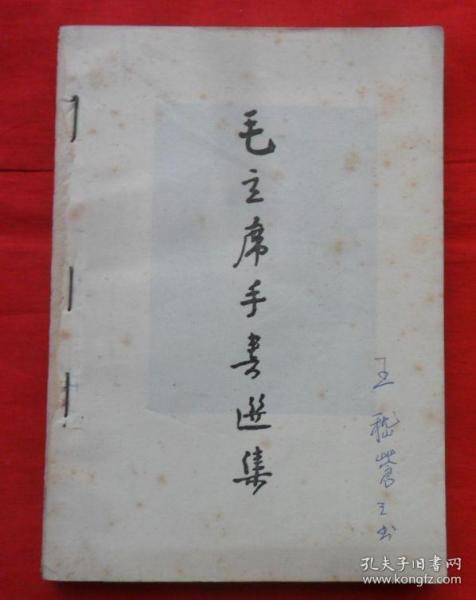 毛主席手書選集
王嵇鶯之书
孔夫子旧书网
www.kongfz.com